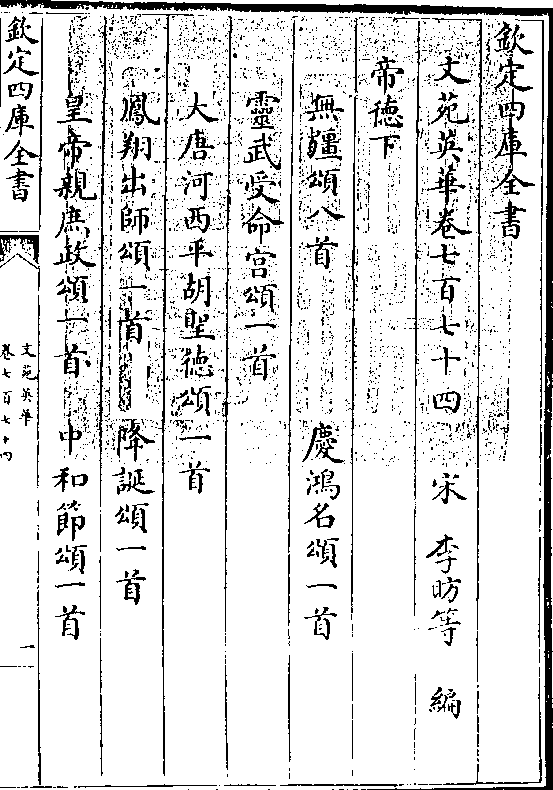 欽定四庫全書
文苑英華卷七百七十四　宋　李昉等　編
帝德下
無疆頌八首　慶鴻名頌一首
靈武受命宮頌一首
大唐河西平胡聖德頌一首
鳳翔出師頌一首　降誕頌一首
皇帝親庶政頌一首　中和節頌一首
欽定四庫全書
文苑英華
卷七百七十四
一